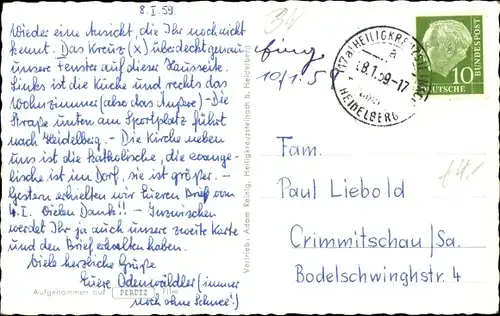 8.I.59
Wieder eine Ansicht, die Ihr noch nicht
kennt. Das Kreuz (x) überdeckt genau
unsere Fenster auf dieser Hausseite.
Links ist die Küche und rechts das
Wohnzimmer (also das Äußere) - Die
Straße unten am Sportplatz führt
nach Heidelberg. - Die Kirche neben
uns ist die katholische, die evange-
lische ist im Dorf, sie ist größer. -
Gestern erhielten wir Eueren Brief vom
4.I. Vielen Dank!! - Inzwischen
werdet Ihr ja auch unsere zweite Karte
und den Brief erhalten haben.
Viele herzliche Grüße
Euere Odenwäldler (immer
noch ohne Schnee!)
Aufgenommen auf PERUTZ Film
Vertrieb: Adam Reinig, Heiligkreuzsteinach b. Heidelberg
10/1.59
(17a) HEILIGKREUZSTEINACH
a
8.1.59-17
über
HEIDELBERG
10
DEUTSCHE
BUNDESPOST
Fam.
Paul Liebold
Crimmitschau/Sa.
Bodelschwinghstr. 4